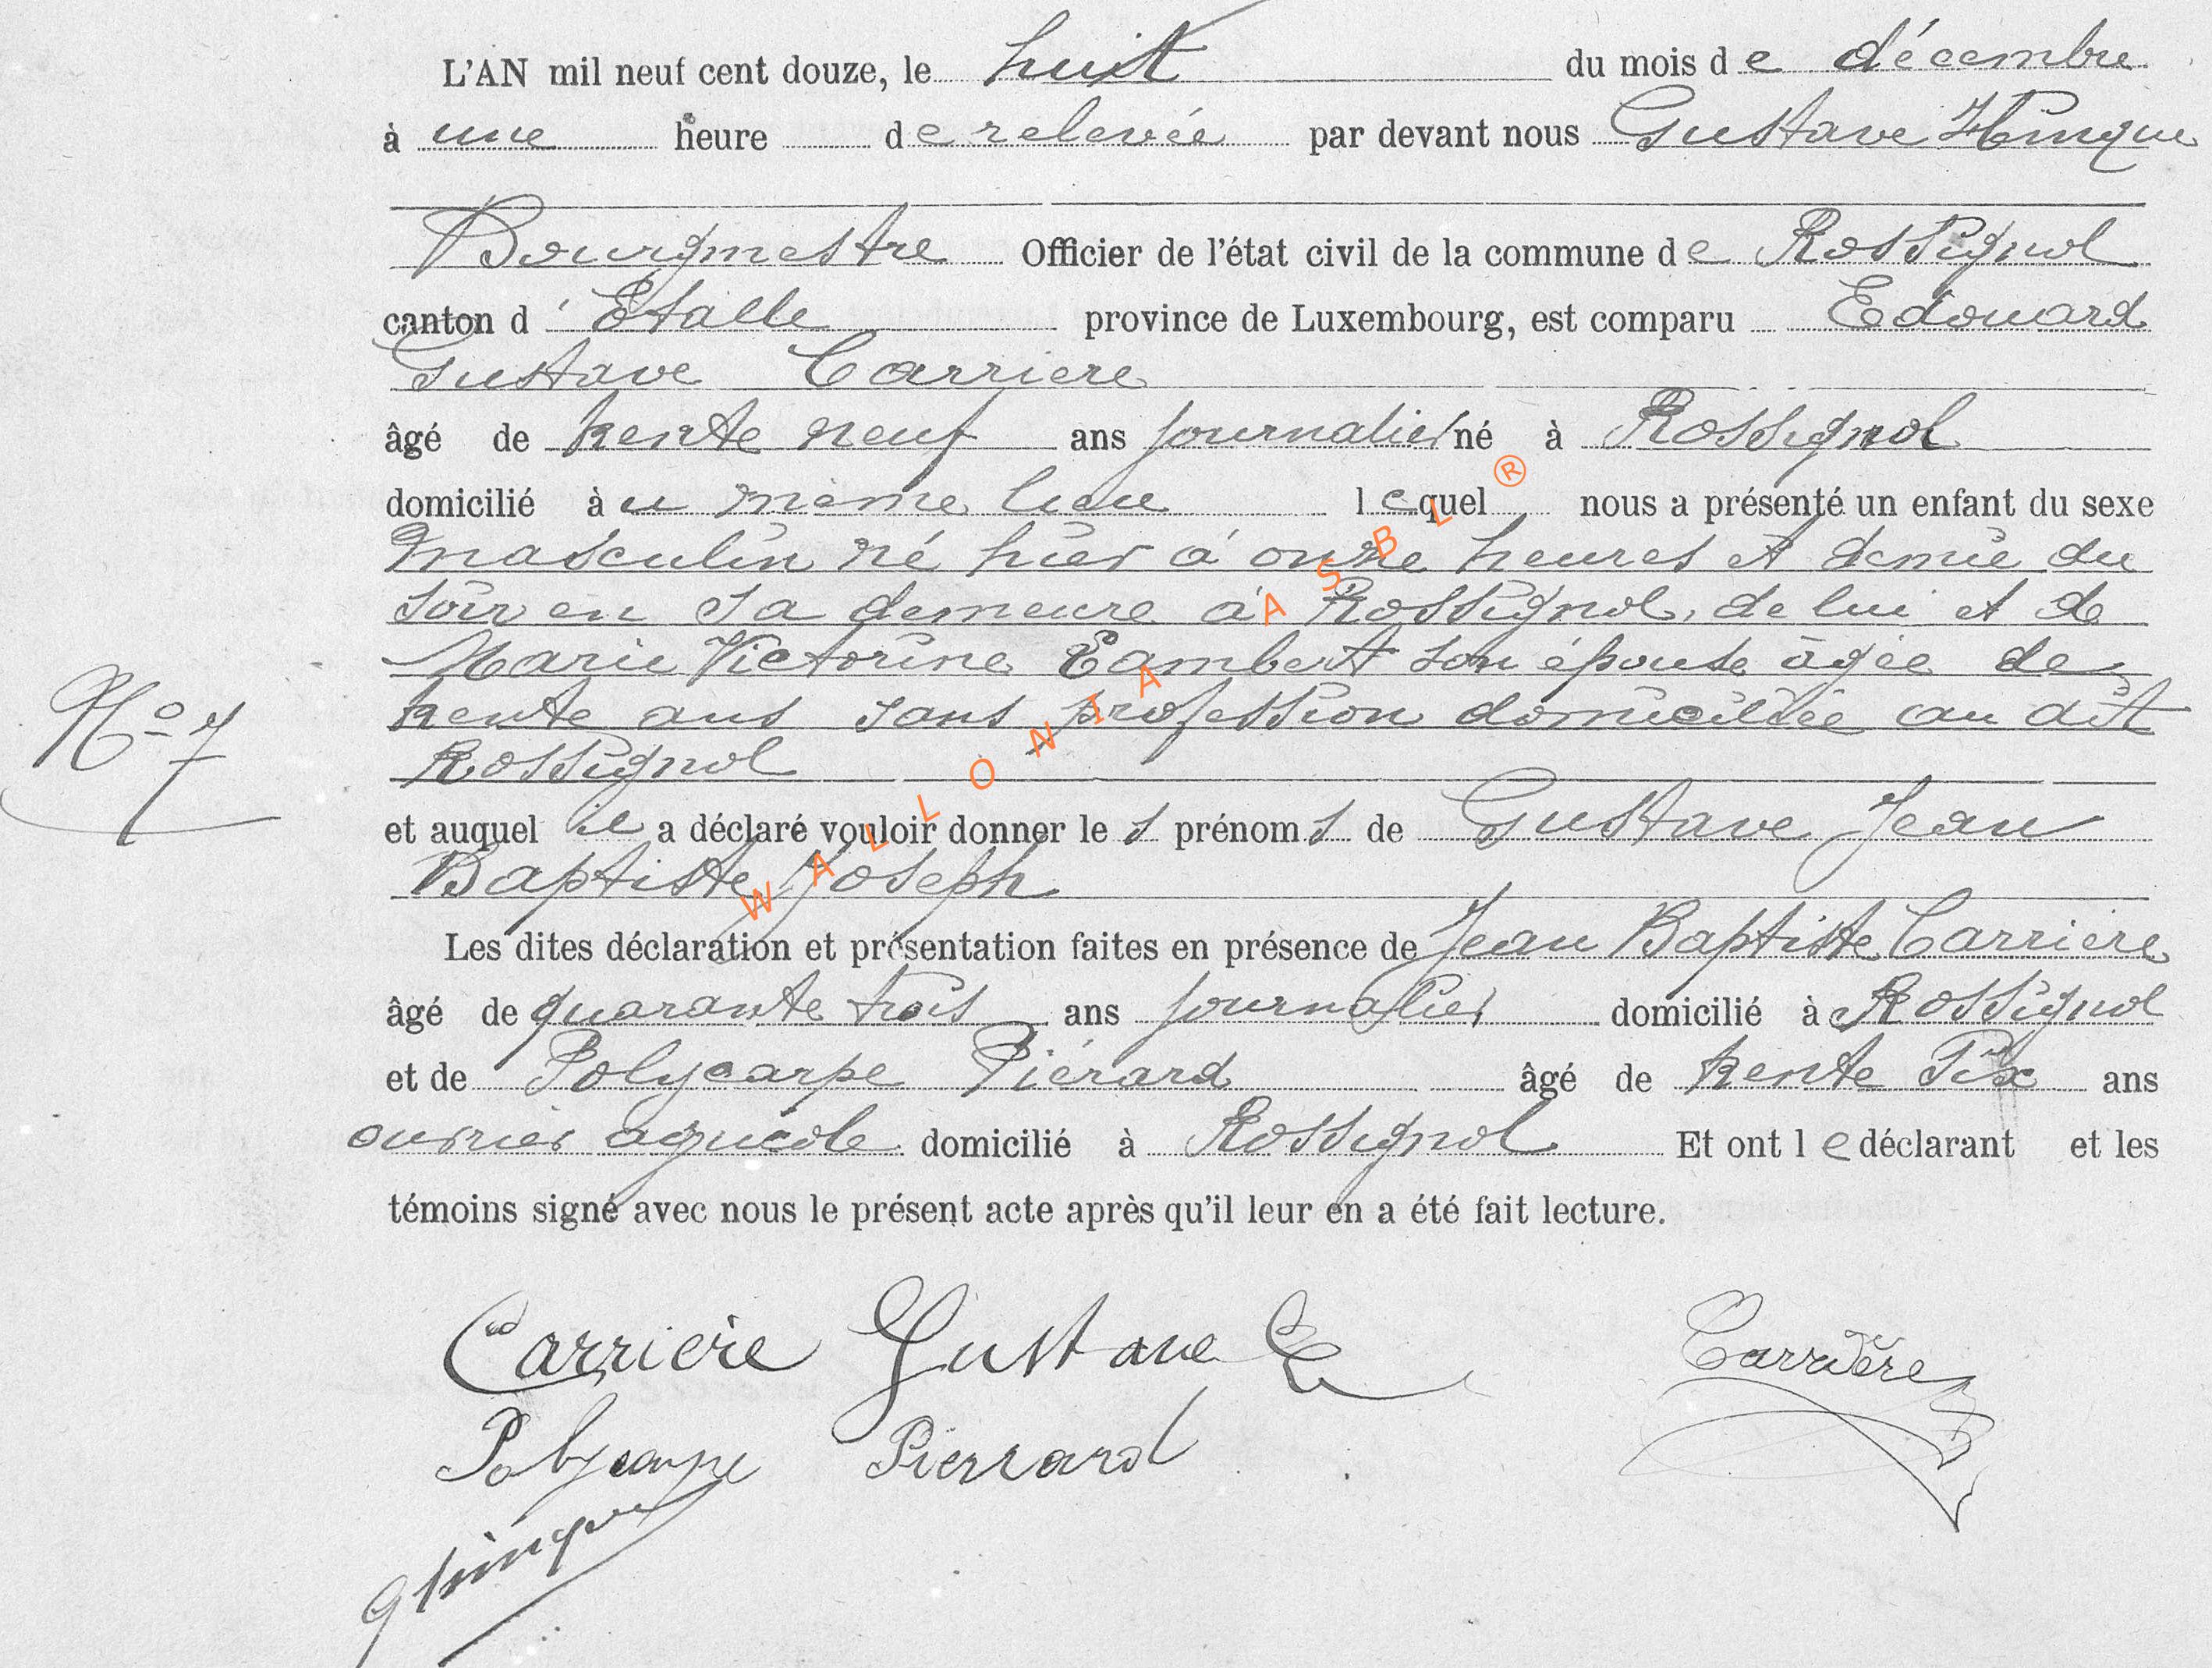 L'AN mil neuf cent douze, le huit du mois de décembre
à une heure de relevée par devant nous Gustave Hinque
Bourgmestre Officier de l'état civil de la commune de Rossignol
canton d'Etalle province de Luxembourg, est comparu Edouard
Gustave Carrière
âgé de trente neuf ans journalier né à Rossignol
domicilié au même lieu lequel nous a présenté un enfant du sexe
masculin né hier à onze heures et demie du
soir en sa demeure à Rossignol, de lui et de
Marie Victorine Lambert son épouse âgée de
trente ans sans profession domiciliée au dit
Rossignol
N° 7
et auquel il a déclaré vouloir donner les prénoms de Gustave Jean
Baptiste Joseph
Les dites déclaration et présentation faites en présence de Jean Baptiste Carrière
âgé de quarante trois ans journalier domicilié à Rossignol
et de Polycarpe Piérard âgé de trente six ans
ouvrier agricole domicilié à Rossignol Et ont le déclarant et les
témoins signé avec nous le présent acte après qu'il leur en a été fait lecture.
Carrière Gustave Carrière
Polycarpe Pierrard
G Hinque
WALLONIA ASBL ®